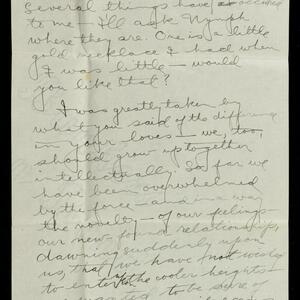 Several things have occured
to me — I'll ask Nymph
where they are. One is a little
gold necklace I had when
I was little — would
you like that?
I was greatly taken by
what you said of the difference
in your loves — we, too,
should grow up together
intellectually. So far we
have been overwhelmed
by the force — and in a way
the novelty — of our feelings —
our new-found relationship,
dawning suddenly upon
us, that we have not
to enter the cooler heights —
to be sure of